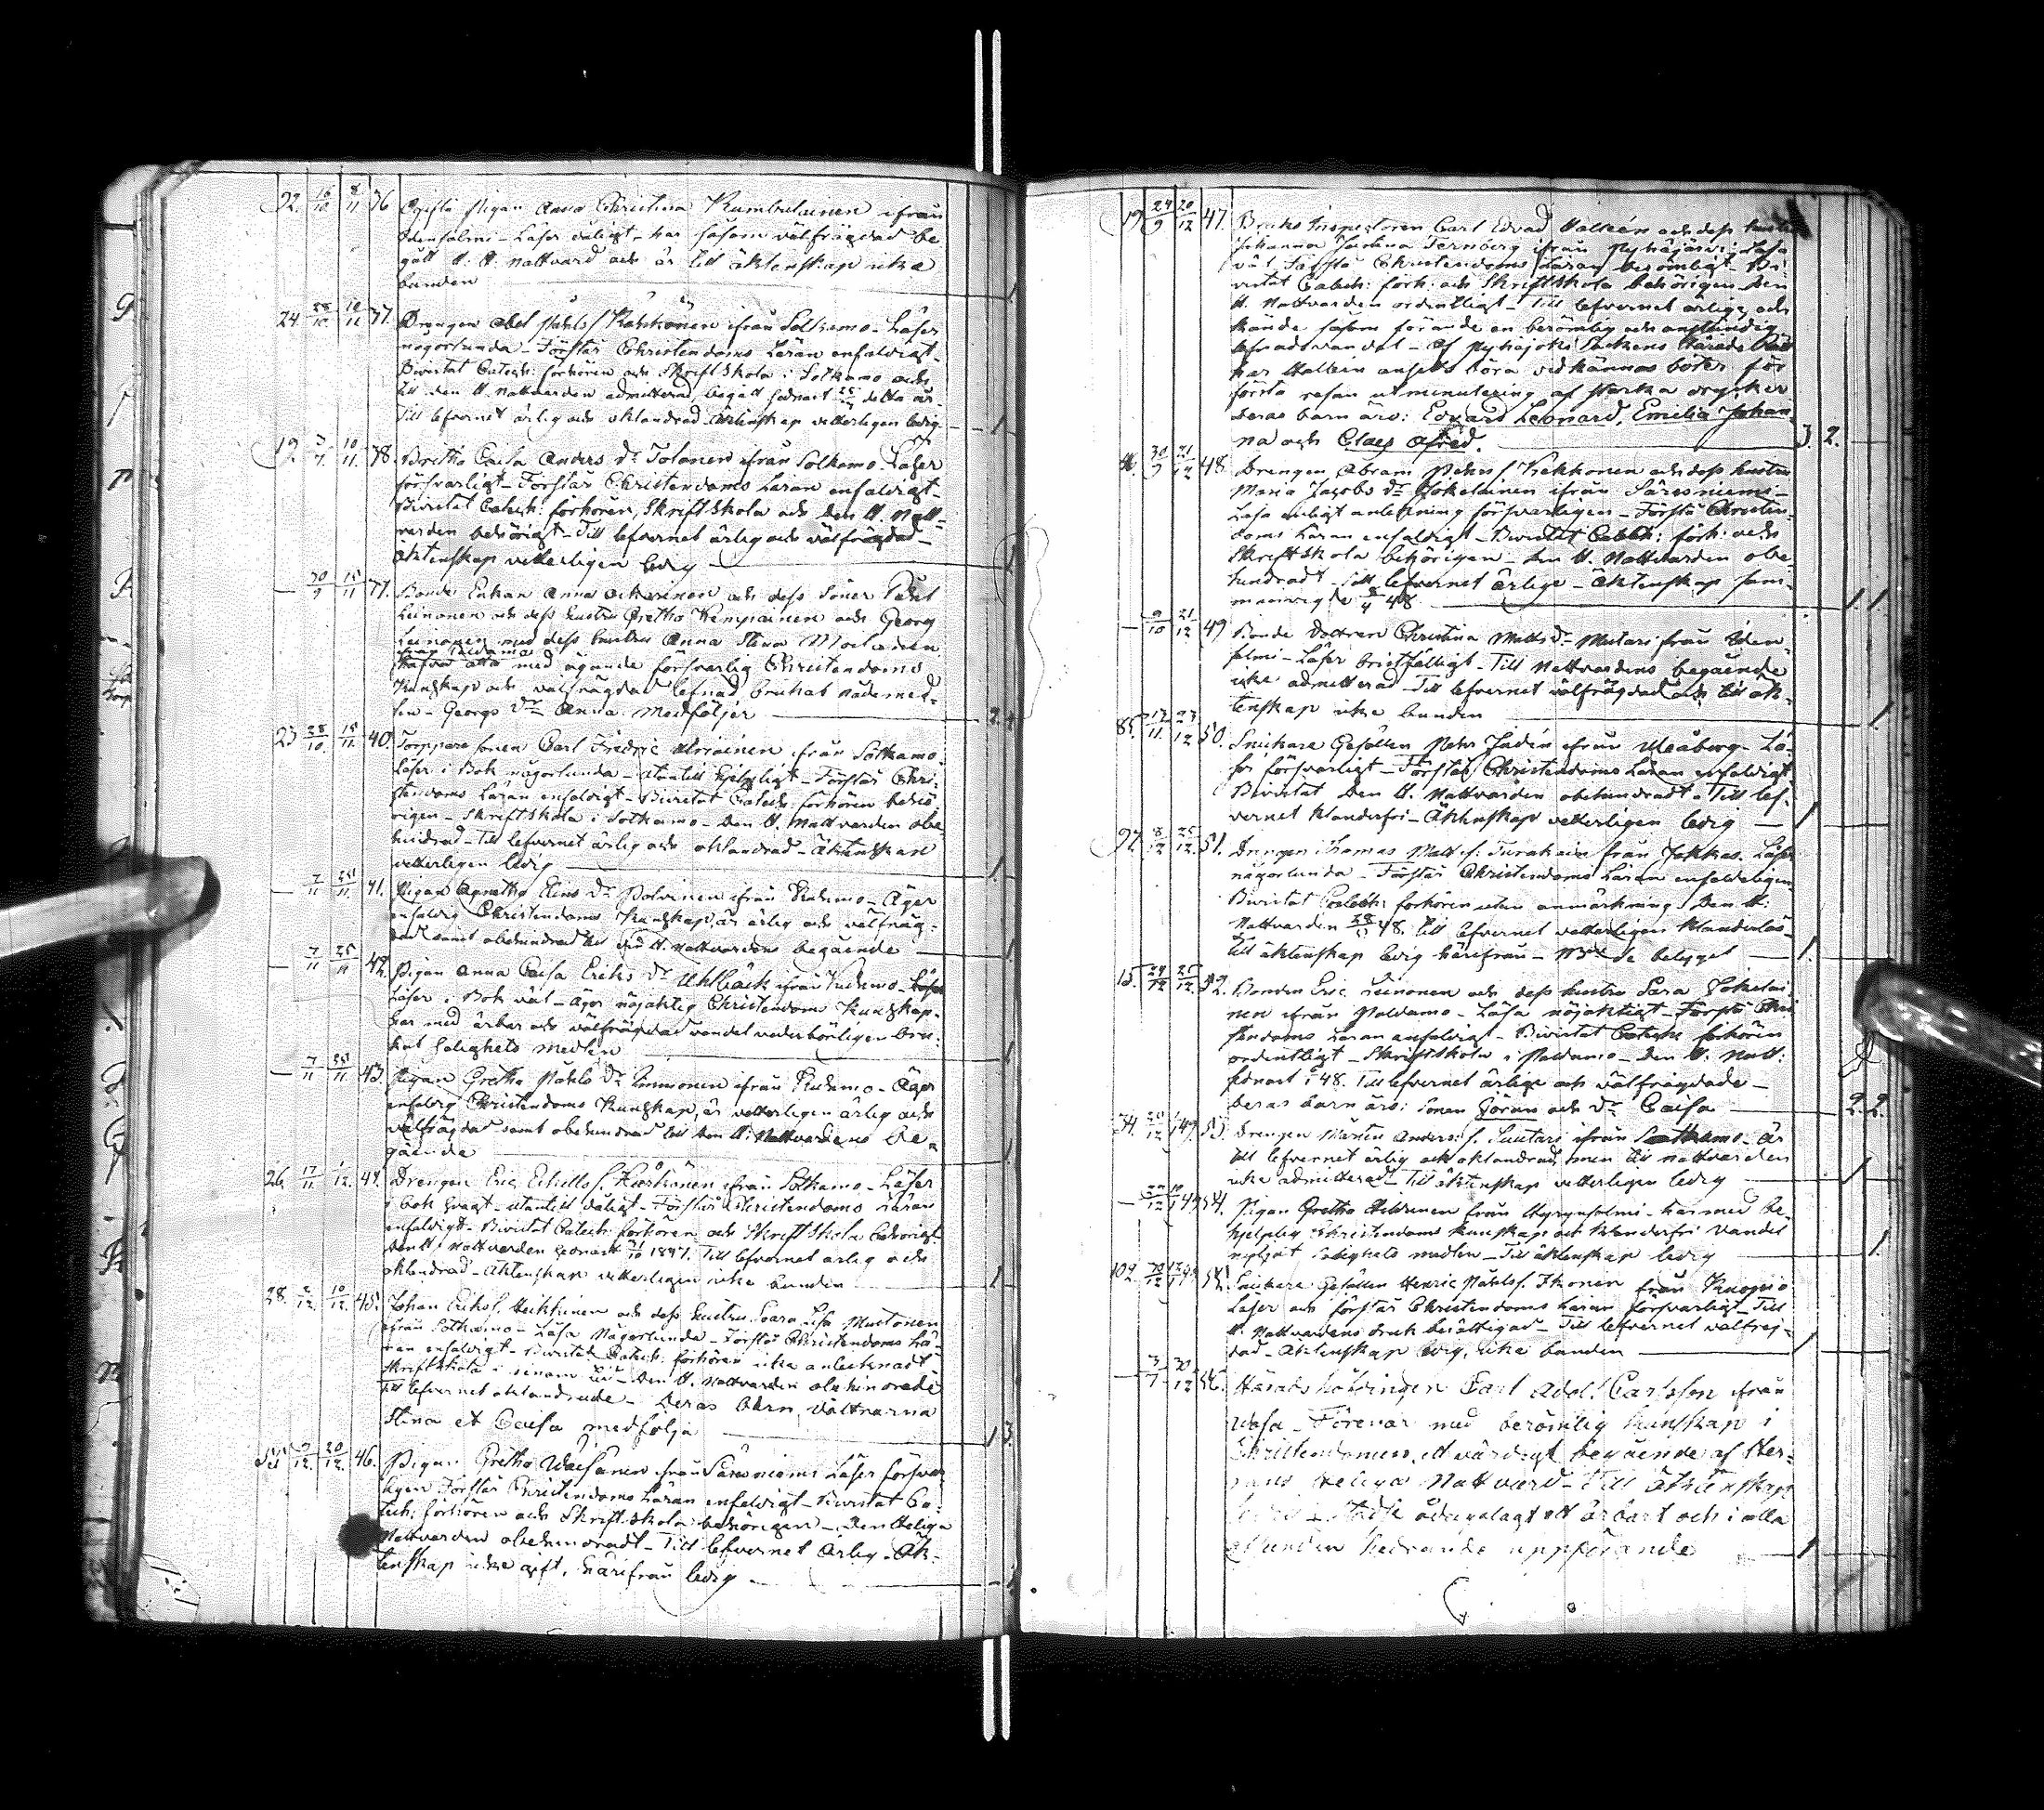 92. 16/10 8/11 36 Ogifta Pigan Anna Christina Kumbulainen ifrån
Idensalmi - Läser dåligt - har såsom välfrägdad be=
gått H. H. Nattvard och är till äktenskap icke
bunden 1
24 28/10 10/11 37. Drengen Abel Påhls s. Kähkönen ifrån Sotkamo - Läser
någorlunda - Förstår Christendoms Läran enfaldigt -
Bivistat Catech: förhören och Skriftskola i Sotkamo och
till den H. Nattvarden admitterad, begått sednast detta år.
Till lefvernet ärlig och oklandrad - Äktenskap vetterligen ledig - 1
19. 10/11. 38. Britha Caisa Anders Dr Tolonen ifrån Sotkamo. Läser
försvarligt - Förstår Christendoms Läran enfaldigt -
Bivistat Catech: förhören, Skriftskola och den H. Natt=
varden behörigt - Till lefvernet ärlig och välfrägdad -
Äktenskap vetterligen ledig 1
— 30/9 15/11 39. Bonde Enkan Anna och dess Söner Påhl
Leinonen och dess hustru Gretha Kemppainen och Georg
Leinonen med dess hustru Anna Stina Moilanen
ifrån Paldamo
hafva alla med ägande försvarlig Christendoms
Kunskap och välfrägdad lefnad brukat nådemed=
len - Georgs Dr Anna medföljer 2.
23 28/10. 15/11. 40. Torppare sonen Carl Fredric ifrån Sotkamo.
Läser i Bok någorlunda - utantill hjelpligt - Förstår Chri=
stendoms Läran enfaldigt - Bivistat Catech: förhören behö=
rigen - Skriftskola i Sotkamo - Den H. Nattvarden obe=
hindrad - Till lefvernet ärlig och oklandrad - Äktenskap
vetterligen ledig 1.
— 7/11 25/11. 41. Pigan Agnetha Elias Dr Polvinen ifrån Kuhmo - Äger
enfaldig Christendoms Kunskap, är ärlig och välfräg=
dad samt obehindrad till den H. Nattvardens begående 1.
— 7/11 25/11 42. Pigan Anna Caisa Eriks Dr Uhlbäck ifrån Kuhmo -
Läser i Bok väl - Äger nöjaktig Christendoms Kunskap.
har med ärbar och välfrägdad vandel vederbörligen bru=
kat Salighets medlen 1
— 7/11 25/11 43. Pigan Gretha Påhls Dr Immonen ifrån Kuhmo - Äger
enfaldig Christendoms Kunskap, är vetterligen ärlig och
välfrägdad samt obehindrad till den H. Nattvardens be=
gående 1
26. 17/11 1/12. 44. Drengen Eric Eskills s. Kärkönen ifrån Sotkamo - Läser
i bok svagt - utantill dåligt - Förstår Christendoms Läran
enfaldigt - Bivistat Catech: förhören och Skriftskola behörigt
den H. Nattvarden sednast 1847. Till lefvernet ärlig och
oklandrad - Äktenskap vetterligen icke bunden 1.
28. 2/12. 10/12. 45. Johan Eriks s. Heikkinen och dess hustru Sara Lisa Mustonen
ifrån Sotkamo - Läsa Någorlunda - Förstå Christendoms Lä=
ran enfaldigt - Bivistat Catech: förhören icke antecknadt
Skriftskola i sinom tid - Den H. Nattvarden obehindrade
Till lefvernet oklandrade - Deras barn, döttrarna
Stina et Caisa medfölja 1 3.
12. 20/12. 46. Pigan Gretha Väisänen ifrån Säresniemi Läser försvar=
ligen Förstår Christendoms Läran enfaldigt - Bivistat Ca=
tech: förhören och Skriftskola behörigen - Den Heliga
Nattvarden obehindradt - Till lefvernet Ärlig - Äk=
tenskap icke gift, härifrån ledig 1
19 24/9 20/12 47. Bruks Inspectoren Carl Edvard Hallén och dess hustru
Johanna Carolina Fernberg ifrån Pyhäjärvi: Läsa
väl Förstå Christendoms Läran berömligt - Bi=
vistat Catech: förh: och Skriftskola behörigen den
H. Nattvarden ordentligt - Till lefvernet ärliga och
kände såsom förande en berömlig och anständig
lefnadsvandel - Af Pyhäjoki Sockens Härads Rätt
har Hallén ansetts böra vidkännas böter för
första resan utminutering af starka drycker
Deras barn äro: Edvard Leonard, Emelia Johan=
na och Claes Alfred. 3. 2.
46. 30/9 21/12 48. Drengen Abram Pehrs s. Kekkonen och dess hustru
Maria Jacobs Dr Jokelainen ifrån Säresniemi -
Läsa enligt anteckning försvarligen - Förstå Christen=
doms Läran enfaldigt - Bivistat Catech: förh: och
Skriftskola behörigen - Den H. Nattvarden obe=
hindradt - Till lefvernet ärlige - Äktenskap sam=
manvigde 48 1. 1.
— 9/10 21/12 49 Bonde dottren Christina Matts Dr Mutari från Iden=
salmi - Läser bristfälligt - Till Nattvardens begående
icke admitterad - Till lefvernet välfrägdad och till äk=
tenskap icke bunden 1.
85. 17/11. 23/12 50. Snickare Gesällen Pehr Judin ifrån Uleåborg - Lä=
ser försvarligt - Förstår Christendoms Läran enfaldigt
Bivistat den H. Nattvarden obehindradt - Till lef=
vernet klanderfri - Äktenskap vetterligen ledig 1.
92. 8/12 25/12. 51. Drengen Thomas Matts s. från Jokkas. Läser
någorlunda - Förstår Christendoms Läran enfaldeligen
Bivistat Catech: förhören utan anmärkning Den H:
Nattvarden 48. Till lefvernet vetterligen klanderlös -
Till äktenskap ledig härifrån - betyget 1.
15. 24/12 25/12. 52. Bonden Eric Leinonen och dess hustru Sara Jokelai=
nen ifrån Paldamo - Läsa nöjaktigt - Förstå Chri=
stendoms Läran enfaldigt - Bivistat Catech: förhören
ordentligt - Skriftskola i Paldamo - Den H. Natt:
sednast i 48. Till lefvernet ärlige och välfrägdade -
Deras barn äro: Sonen Göran och Dr Caisa 2. 2.
34. 20/12 1/1 49. 53. Drengen Mårten Anders s. Suutari ifrån Sotkamo - är
till lefvernet ärlig och oklandrad, men till Nattvarden
icke admitterad - Till äktenskap vetterligen ledig 1
— 54. Pigan Gretha Heikkinen från Hyrynsalmi - har med be=
hjelplig Christendoms kunskap och klanderfri vandel
nyttjat Salighets medlen - Till äktenskap ledig 1.
102. 55. Snickare Gesällen Henric Påhls s. Ikonen från Kuopio
Läser och förstår Christendoms Läran försvarligt - Till
H. Nattvardens bruk berättigad - Till lefvernet välfrej=
dad - Äktenskap ledig, icke bunden 1
— 3/7 30/12 56. Häradshöfdingen Carl Adolf Carlsson ifrån
Wasa - Förenar med berömlig kunskap i
Christendomen, ett värdigt begående af Her=
rans Heliga Nattvard - Till äktenskap
ledig ådagalagt ett ärbart och i alla
afseenden hedrande uppförande 1